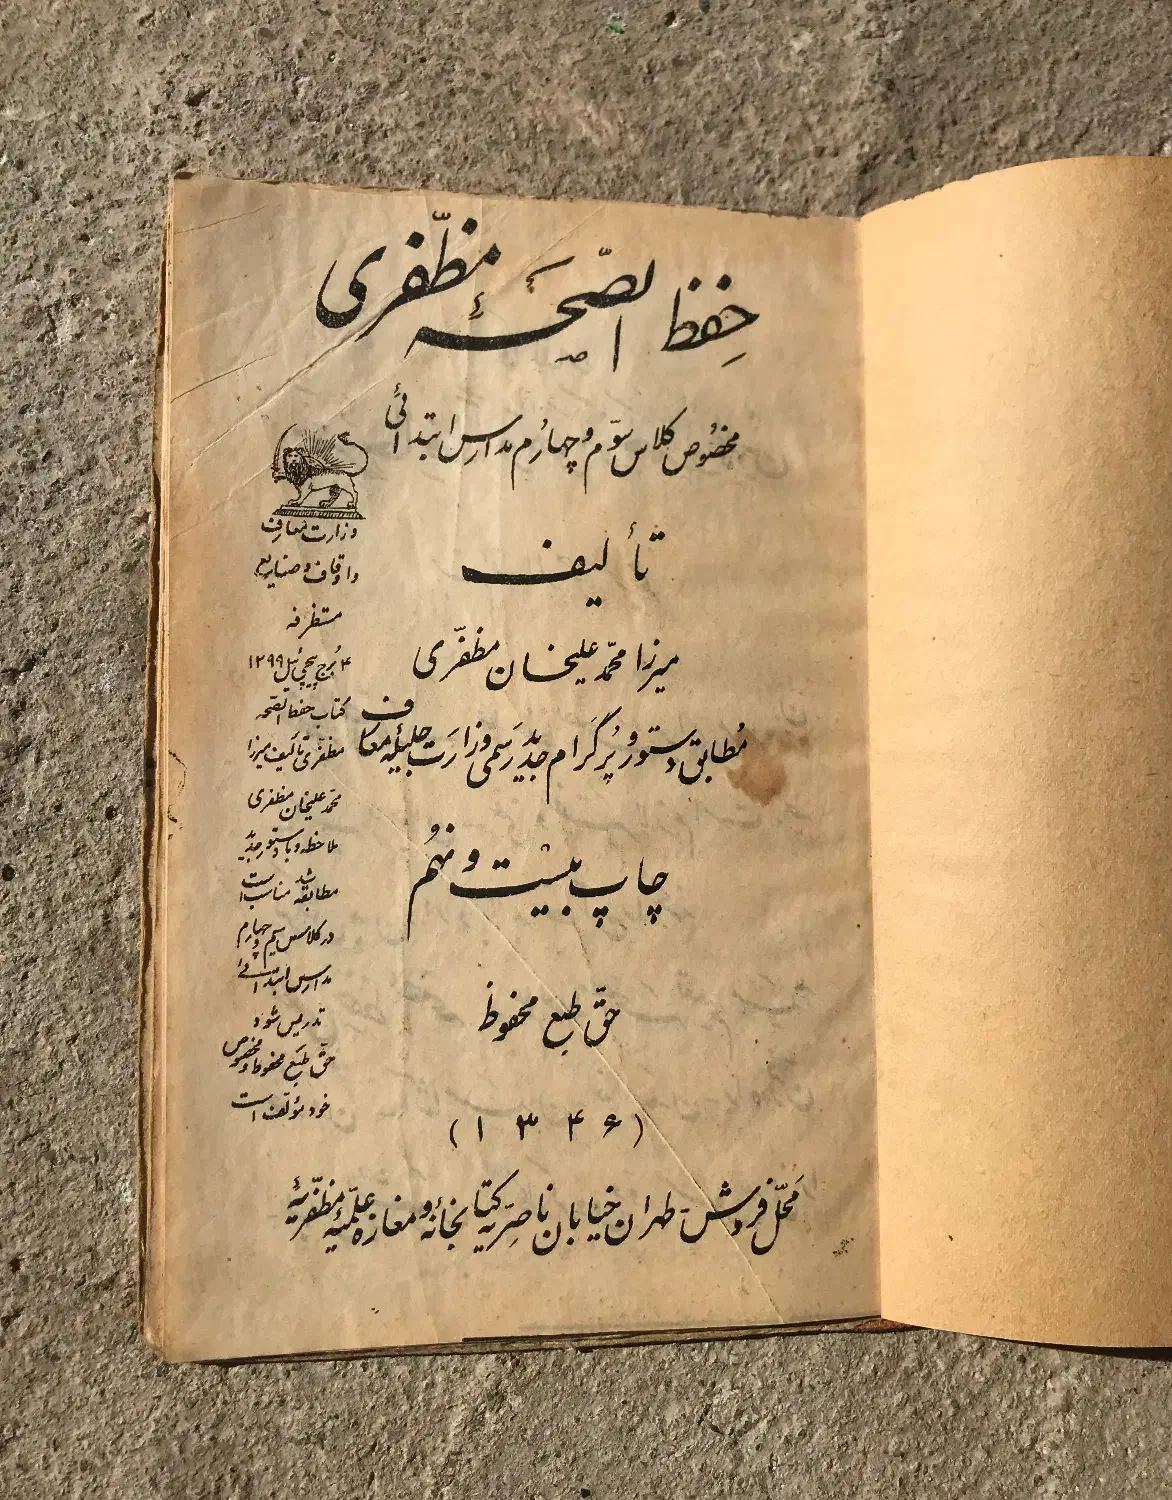 حِفظ الصّحَۀ مظفّری
مخصُوص کلاس سوّم و چهارُم مدارس ابتدائی
تألیف
میرزا محمّد علیخان مظفّری
مُطابق دستور و پُرگرام جدید رَسمی وزارَت جلیلۀ معارف
چاپ بیست و نهُم
حقّ طبع محفوظ
(۱۳۴۶)
مَحلّ فروش - طهران خیابان ناصِرِیّه کتابخانۀ و مغازه علمّیۀ مظفّریۀ
وزارت معارف
و اوقاف و صنایع
مستظرفه
۴ بُرج پیچی ئیل ۱۲۹۹
کتاب حفظ الصّحه
مظفّری تألیف میرزا
محمّد علیخان مظفری
ملاحظه و با دستور جدید
مطابقه شد مناسب است
در کلاس سیم و چهارم
مدارس ابتدائی
تدریس شود
حقّ طبع محفوظ و مخصوص
خود مؤلّف است